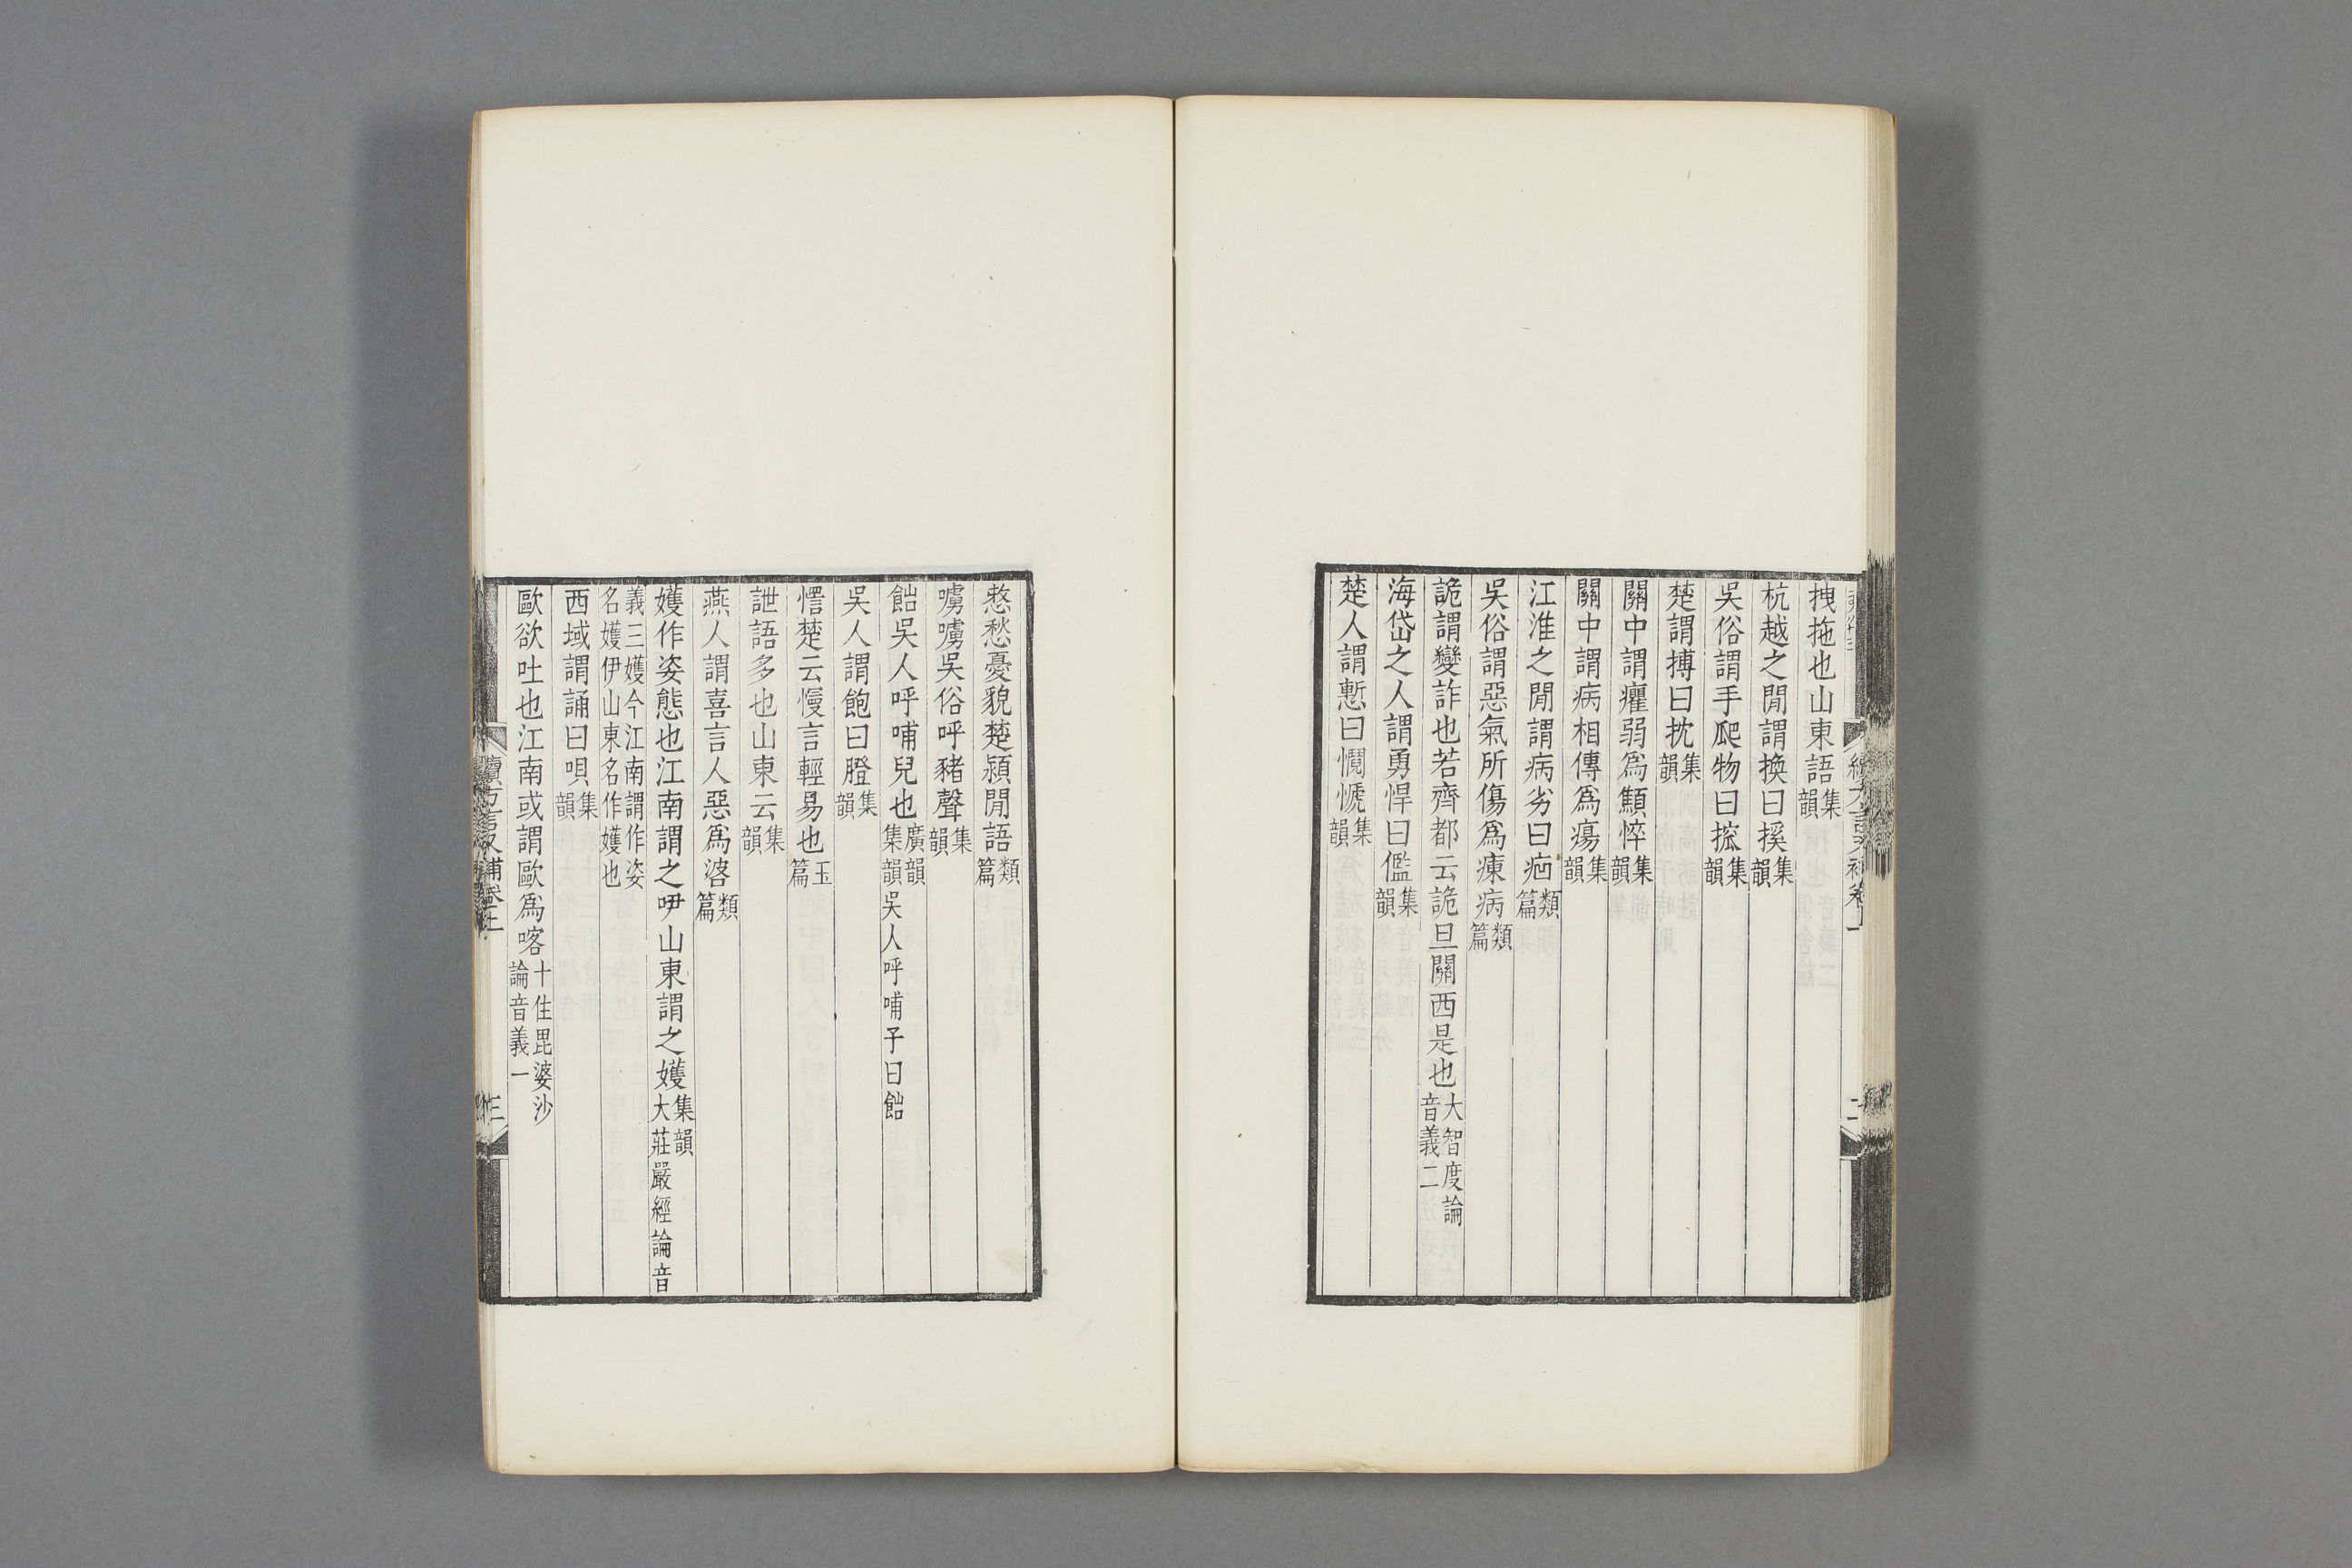 拽拖也山東語集韻
杭越之閒謂換曰㨙集韻
吳俗謂手爬物曰㧜集韻
楚謂搏曰抌集韻
關中謂癯弱爲顦悴集韻
關中謂病相傳爲瘍集韻
江淮之閒謂病劣曰㽱類篇
吳俗謂惡氣所傷爲㾖病類篇
詭謂變詐也若齊都云詭旦關西是也大智度論音義二
海岱之人謂勇悍曰㜮集韻
楚人謂慙曰㦨㦃集韻
愁憂貌楚潁閒語類篇
嘮嘮吳俗呼豬聲集韻
飿吳人呼哺兒也廣韻集韻吳人呼哺子曰飿
吳人謂飽曰䐭集韻
楚云慢言輕易也玉篇
詍語多也山東云集韻
燕人謂喜言人惡爲㗼類篇
嬳作姿態也江南謂之吚山東謂之嬳集韻大莊嚴經論音
義三嬳今江南謂作姿名嬳伊山東名作嬳也
西域謂誦曰唄集韻
歐欲吐也江南或謂歐爲喀十住毘婆沙論音義一
續方言又補卷上
三